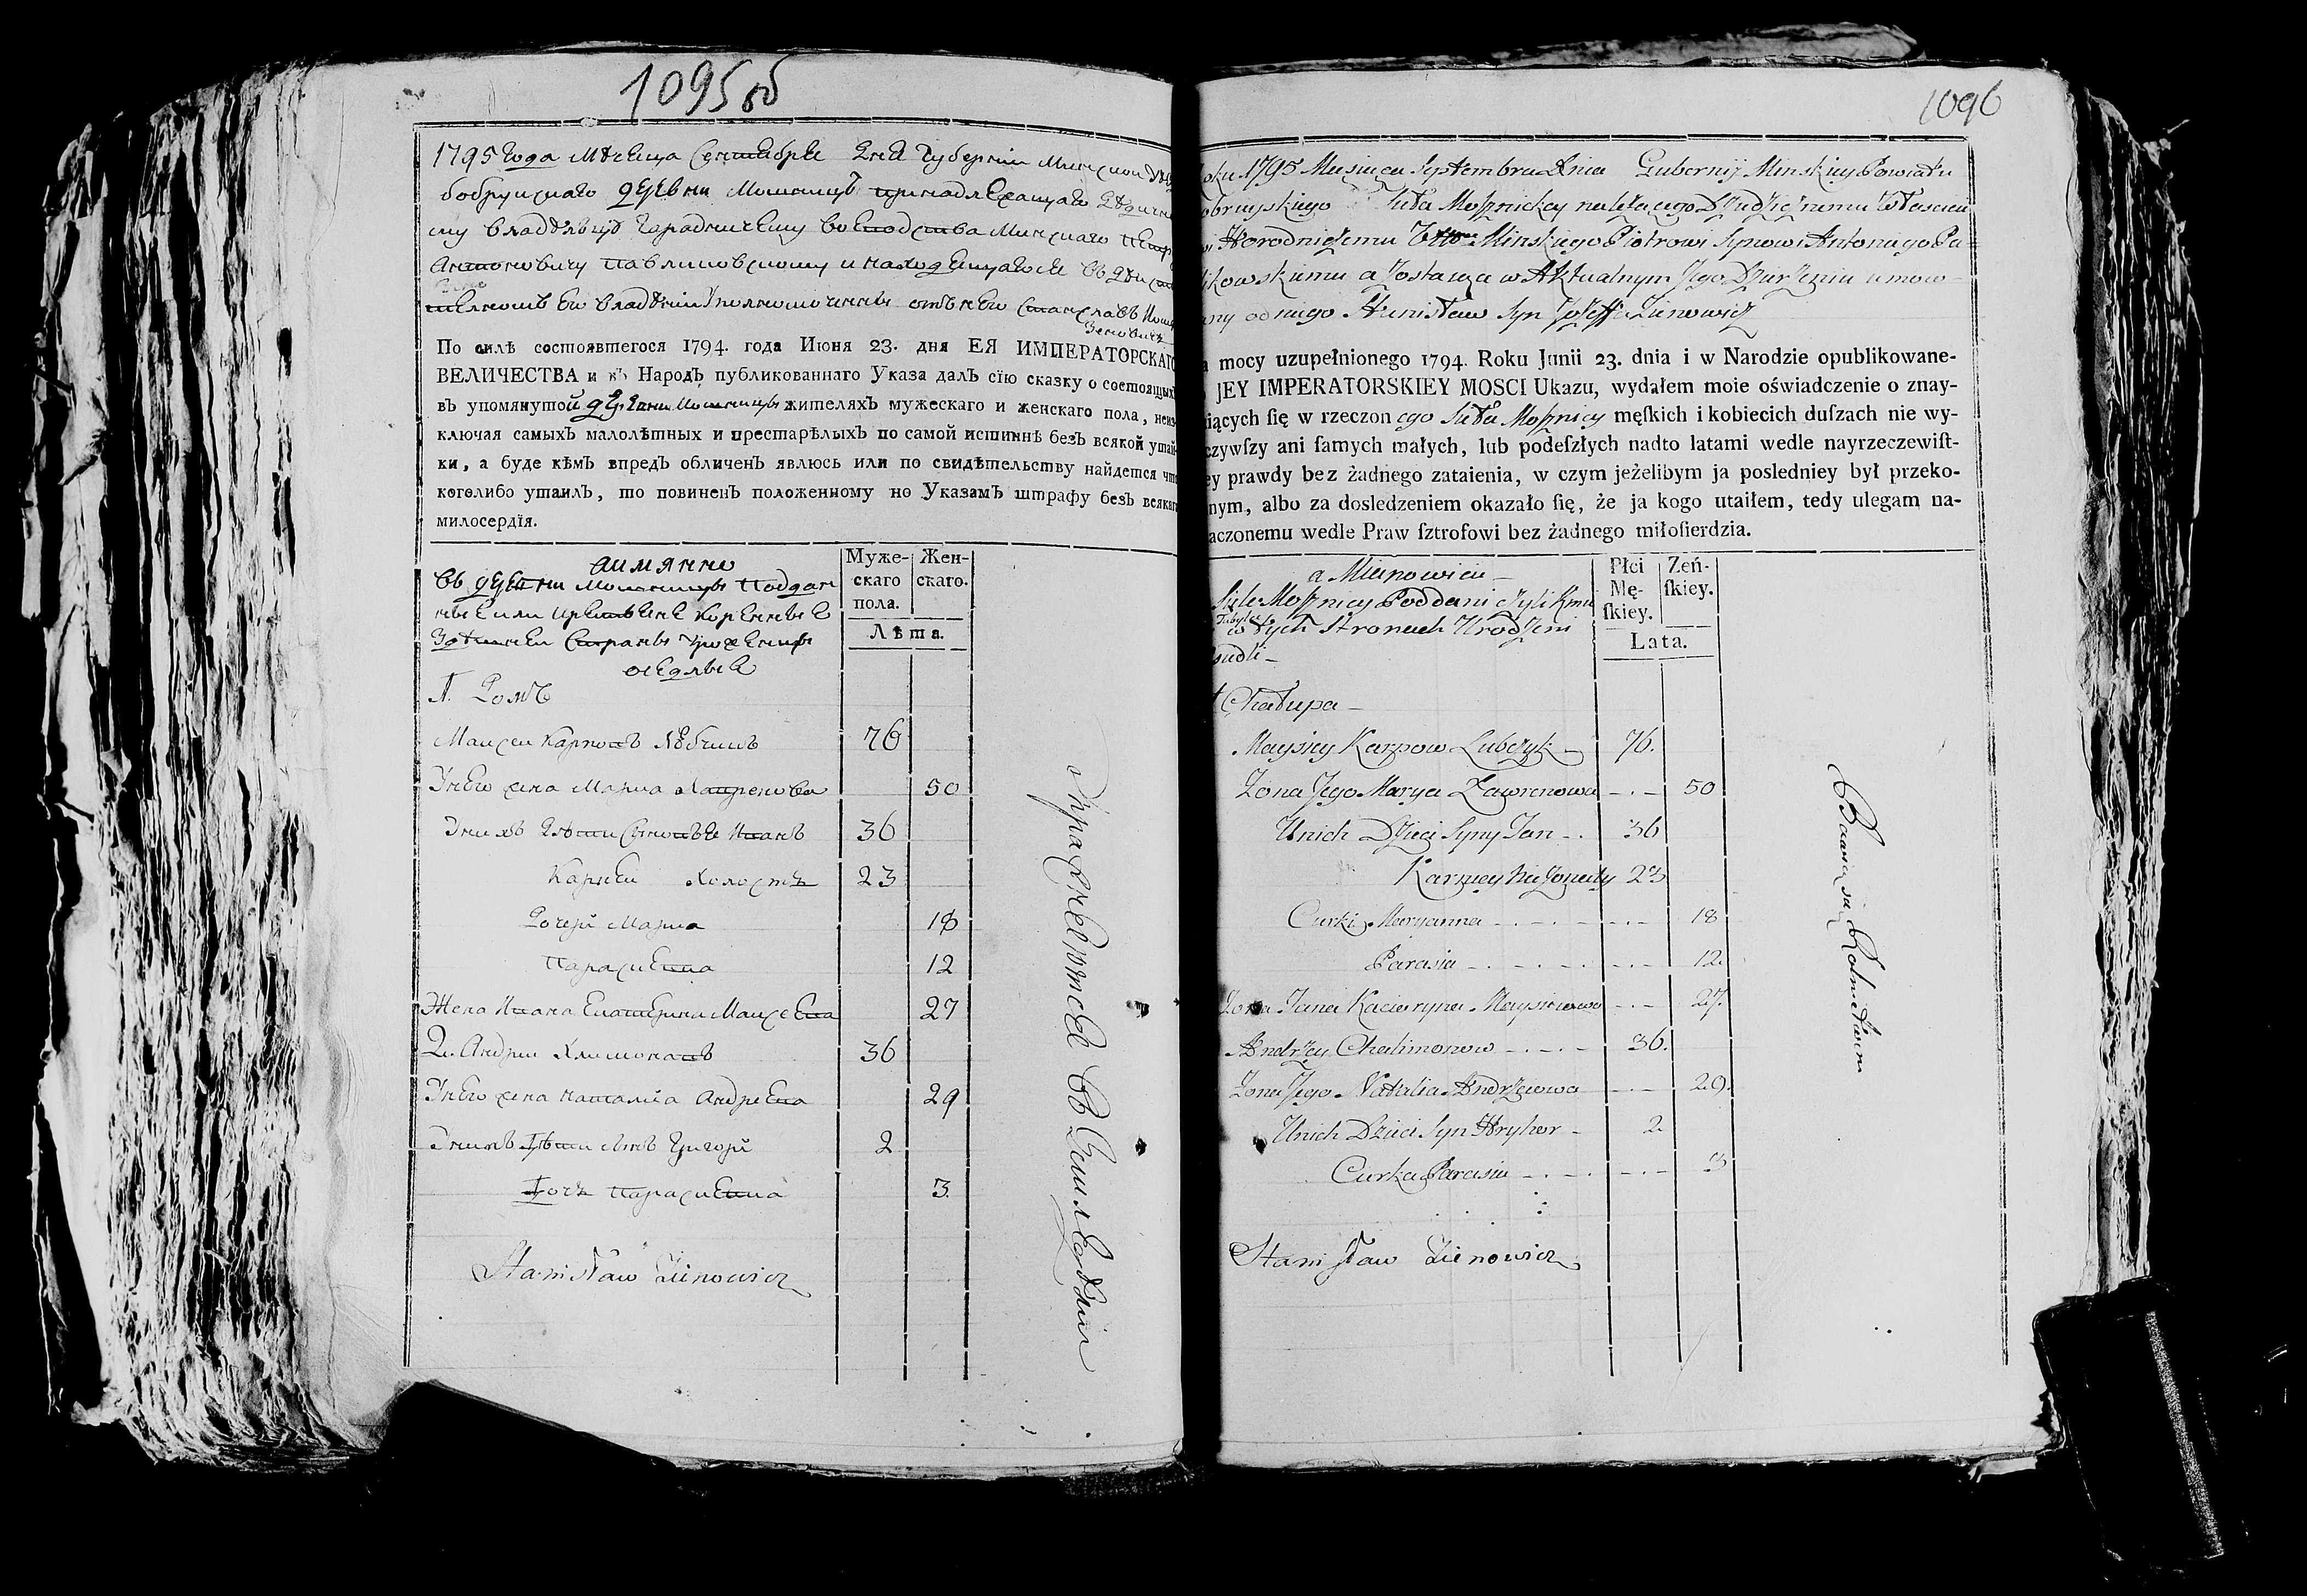 1095об
1795 Года Мѣсяца Сентября Дня Губернiи Минской
бобруйскаго деревни Мошницъ принадлежащаго
му владѣльцу Гараднычему воеводства Минскаго
Антоновичу Павликовскому и находящагося въ
владѣнiи Уполномоченны отъ него Станславъ
Зеновичъ
По силѣ состоявшегося 1794. года Июня 23. дня ЕЯ ИМПЕРАТОРСКАГО
ВЕЛИЧЕСТВА и въ НародЪ публикованнаго Указа далЪ сїю сказку о состоящихЪ
въ упомянутой деревни Мошницы жителяхЪ мужескаго и женскаго пола, неиз-
ключая самыхЪ малолѣтныхЪ и престарѣлыхЪ по самой истиннѣ безЪ всякой утай-
ки, а буде кѣмЪ впредЪ обличенЪ явлюсь или по свидѣтельству найдется что
коголибо утаилЪ, то повиненЪ положенному по УказамЪ штрафу безЪ всякаго
милосердїя.
аимянно
Въ деревни Мошницы Поддан
ные или крестьяне коренные
Здешней Страны Уроженцы
оседлые
Муже-
скаго
пола.
Жен-
скаго.
Лѣта.
1. Домъ
Маисеи Карповъ Любчикъ 76
У него жена Марья Лавренова 50
У нихъ дѣти Сыновья Иванъ 36
Карней Холостъ 23
Дочери Марья 18
Парасковья 12
Жена Ивана Екатерина Маисеева 27
2. Андрей Халимоновъ 36
У него жена Наталия Андреева 29
У нихъ дѣти сынъ Григорй 2
Дочь Парасковья 3.
Stanisław Zienowicz
Упражняются въ Земледѣлiи
1096
oku 1795 Miesiąca Septembra Dnia Gubernij Minskiey Powiatu
obruyskiego Sioła Mosznickey należącego Dziedzicznemu Włascicie
wi Horodniczemu Wttwa Minskiego Piotrowi Synowi Antoniego Pa-
likowskiemu a Zostaiąca w Aktualnym Jego Dzierżeniu umow-
any od niego Stanisław Syn Jozeffa Zienowicz
a mocy uzupełnionego 1794. Roku Junii 23. dnia i w Narodzie opublikowane-
JEY IMPERATORSKIEY MOSCI Ukazu, wydałem moie oświadczenie o znay-
iących ſię w rzeczonego Sioła Mosznicy męſkich i kobiecich duſzach nie wy-
czywſzy ani ſamych małych, lub podeſzłych nadto latami wedle nayrzeczewiſt-
ey prawdy bez żadnego zataienia, w czym jeżelibym ja posledniey był przeko-
nym, albo za dosledzeniem okazało ſię, że ja kogo utaiłem, tedy ulegam na-
aczonemu wedle Praw ſztrofowi bez żadnego miłoſierdzia.
a Mianowicie
Siele Mosznicy Poddani czyli Kmi
w tych Stronach Urodzeni
siedli
Płci
Mę-
ſkiey.
Zeń-
ſkiey.
Lata.
1 Chałupa
Maysiey Karpow Lubczyk 76.
Zona Jego Marya Ławrenowa 50
U nich Dzieci Syny Jan 36
Karniey Nieżonaty 23
Curki Maryanna 18
Parasia 12.
Zona Jana Kacieryna Maysieiewa 27.
Andrzey Chalimonow 36.
Zona Jego Natalia Andrzeiowa 29.
U nich Dzieci Syn Hryhor 2
Curka Parasia 3
Stanisław Zienowicz
Bawią się Rolnictwem